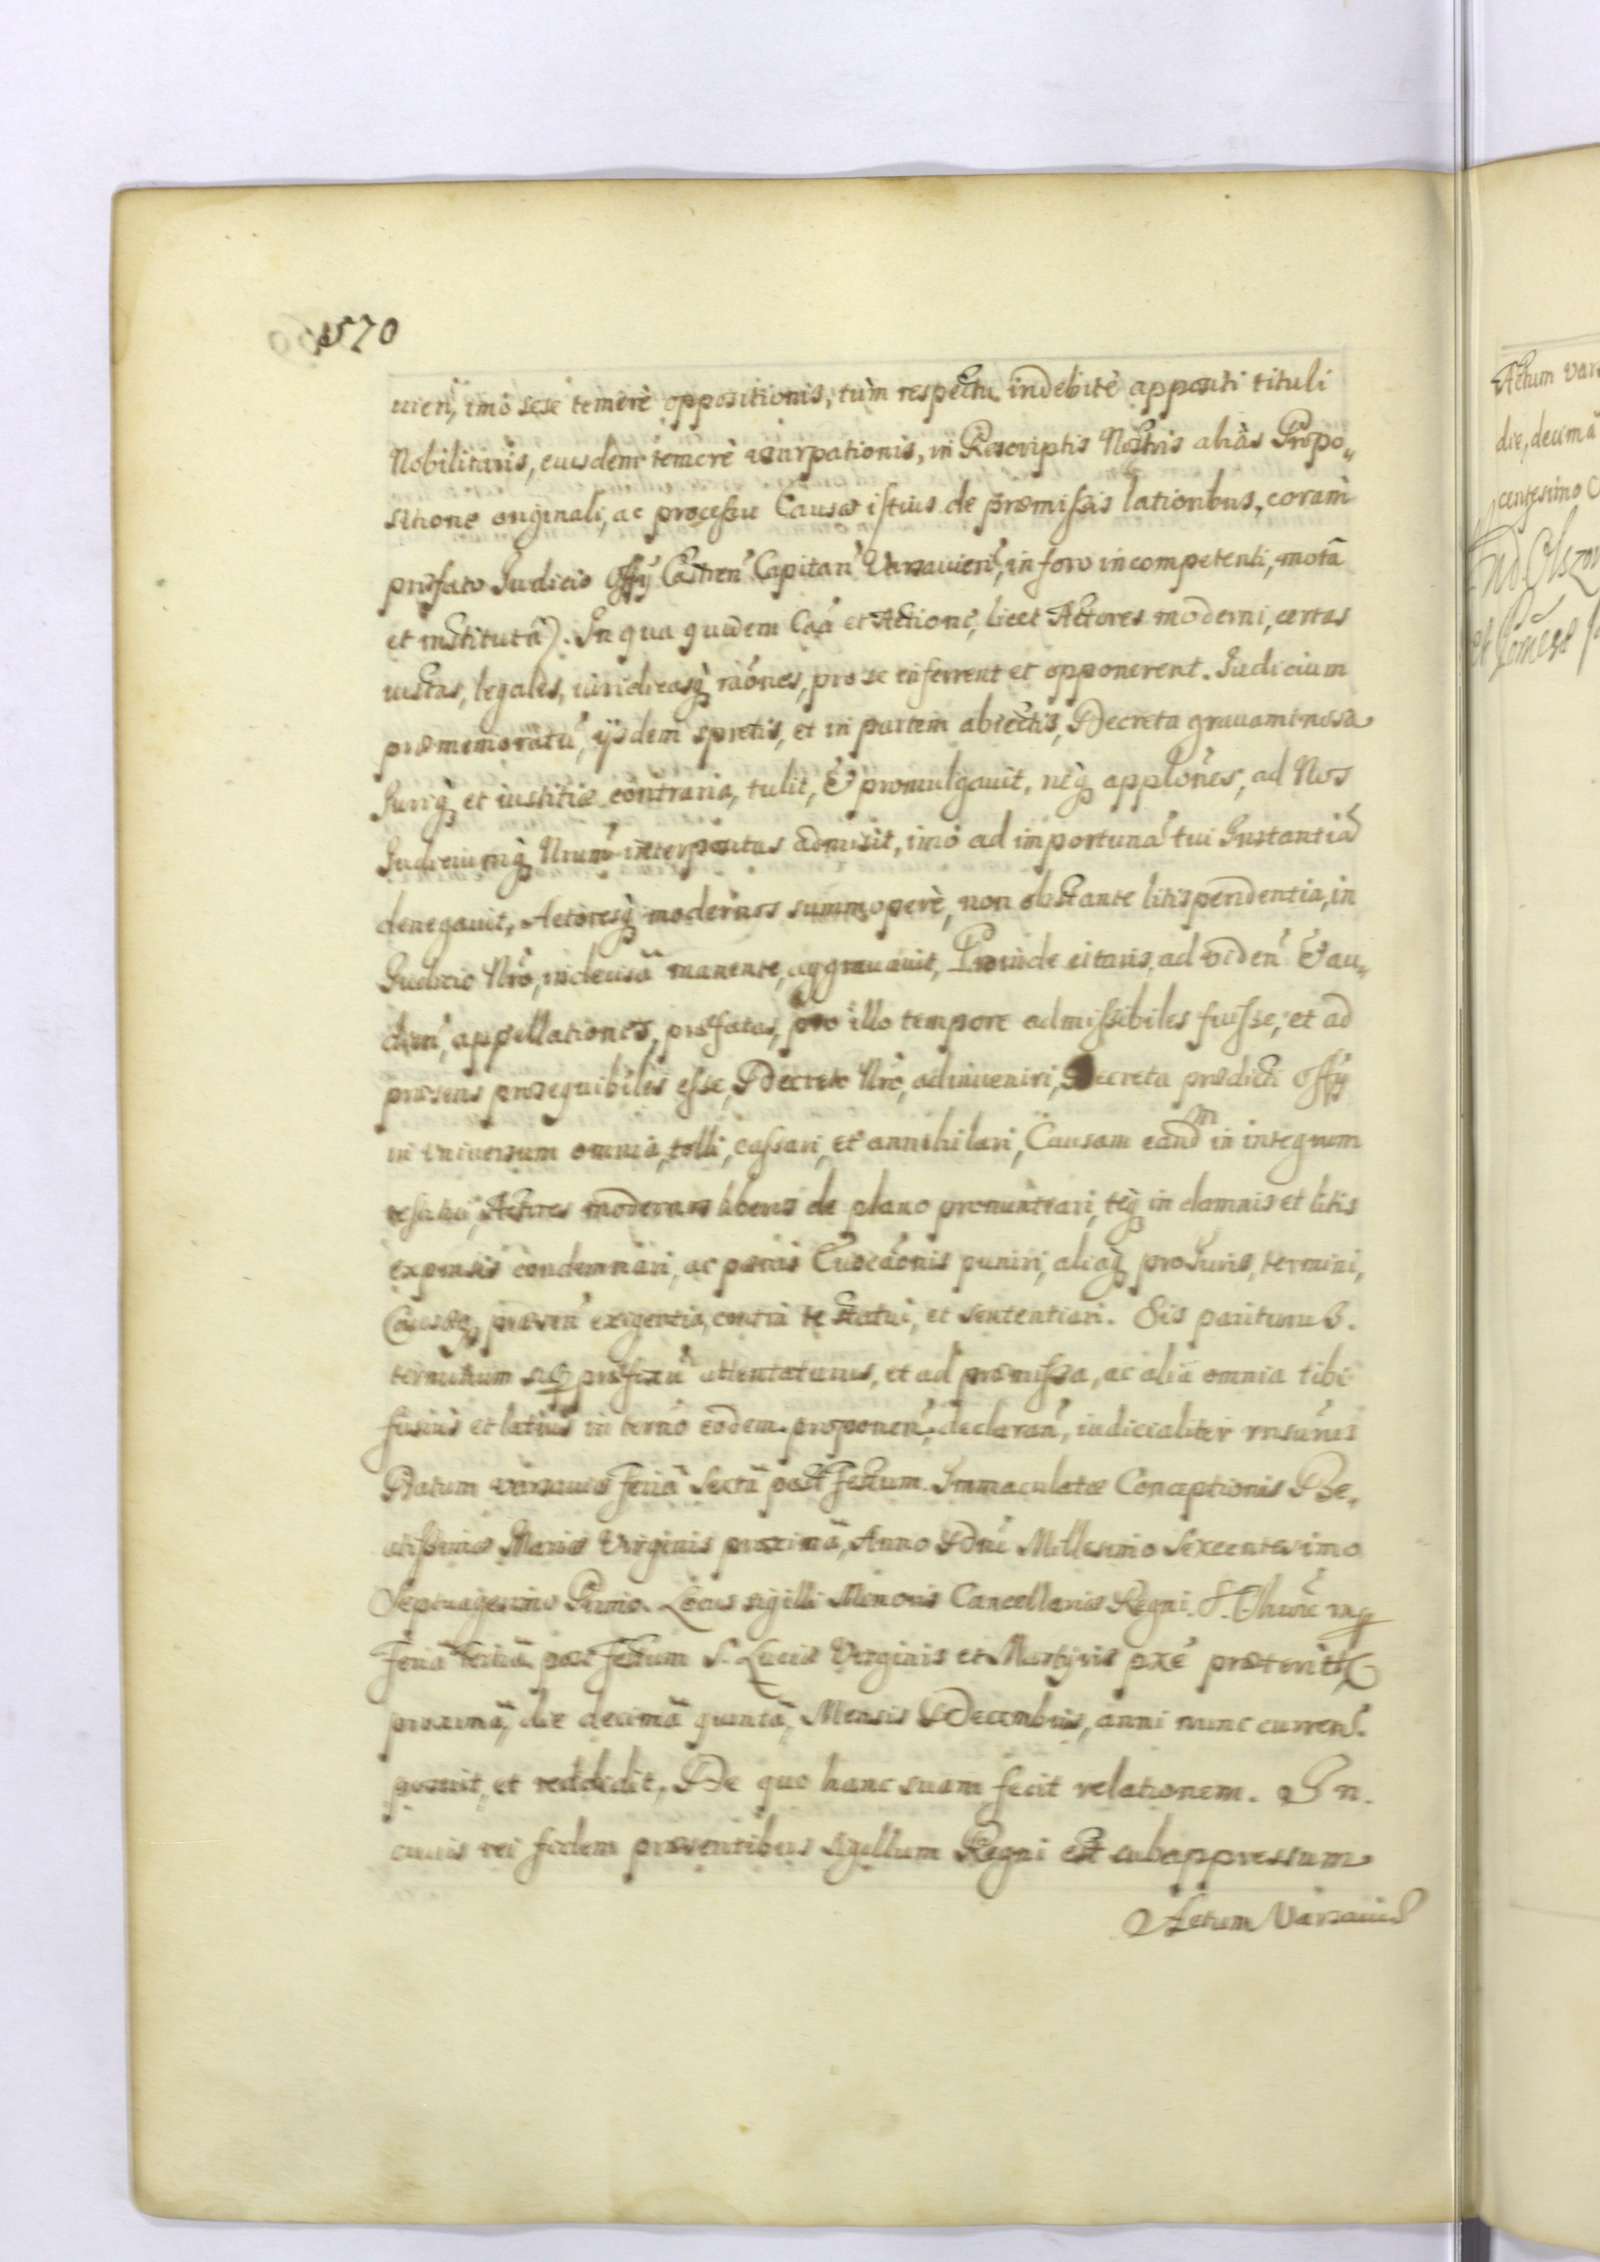 570
uien, imò sese temerè oppositionis, tùm respectu indebitè appositi tituli
Nobilitaris, eiusdemq temerè usurpationis, in Rescriptis Nostris aliàs Propo„
sitione originali, ac processu Causæ istius de præmissis lationibus, coram
præfato Iudicio Offÿ Castren Capitan Varsauien, in foro incompetenti, motã
et institutã). In qua quidem Caã et Actione, licet Actores moderni, certas
iustas, legales, iuridicasq raones, pro se inferrent et opponerent. Iudicium
præmemoratũ, ijsdem spretis, et in partem abiectis, Decreta grauaminosa
Juriq et iustitiæ contraria, tulit, & promulgauit, neq applones, ad Nos
Iudiciumq Nrum interpositas admisit, imò ad importunã tui Instantiã
denegauit, Actoresq modernos summoperè, non obstante litispendentia, in
Iudicio Nro, indecisã manente, aggrauauit, Proinde citaris, ad viden & au„
dien, appellationes, præfatas, pro illo tempore admissibiles fuisse, et ad
præsens prosequibiles esse, Decreto Nro, adinueniri, Decreta prædicti Offÿ
in vniuersum omnia, tolli, cassari, et annihilari, Causam eandm in integrum
restitui, Actores modernos liberos de plano pronuntiari, teq in damnis et litis
expensis condemnari, ac pœnis Euocaonis puniri, aliaq pro Iuris, termini,
Causæq, præsen exigentia, contra te statui, et sententiari. Sis pariturus.
terminum sup præfixũ attentaturus, et ad præmissa, ac alia omnia tibi
fusius et latius in termo eodem proponen, declaran, iudicialiter rnsurus
Datum Varsauiæ feriã Sextã post festum Immaculatæ Conceptionis Be„
atissimæ Mariæ Virginis proximã, Anno Dni Millesimo Sexcentesimo
Septuagesimo Primo. Locus sigilli Minoris Cancellariæ Regni.
feriã tertiã post festum S. Luciæ Virginis et Martyris pxe præterito
proximã, die decimã quintã, Mensis Decembris, anni nunc curren.
posuit, et reddidit, De quo hanc suam fecit relationem. In
cuius rei fidem præsentibus sigillum Regni est subappressum
Actum Varsauiæ
Actum Vars
die, decimã
centesimo